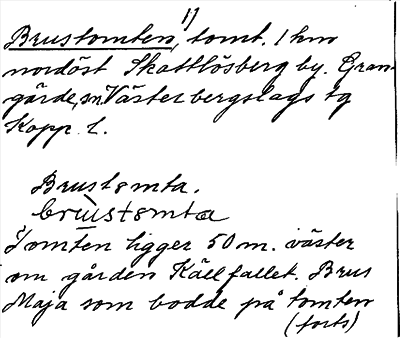 1)
Brustomten, tomt. 1 km
nordöst Skattlösberg by. Gran-
gärde sn. Västerbergslags tg
Kopp. l.
Brustomta.
brùstomta
Tomten ligger 50 m. väster
om gården Källfallet. Brus
Maja som bodde på tomten
(forts)